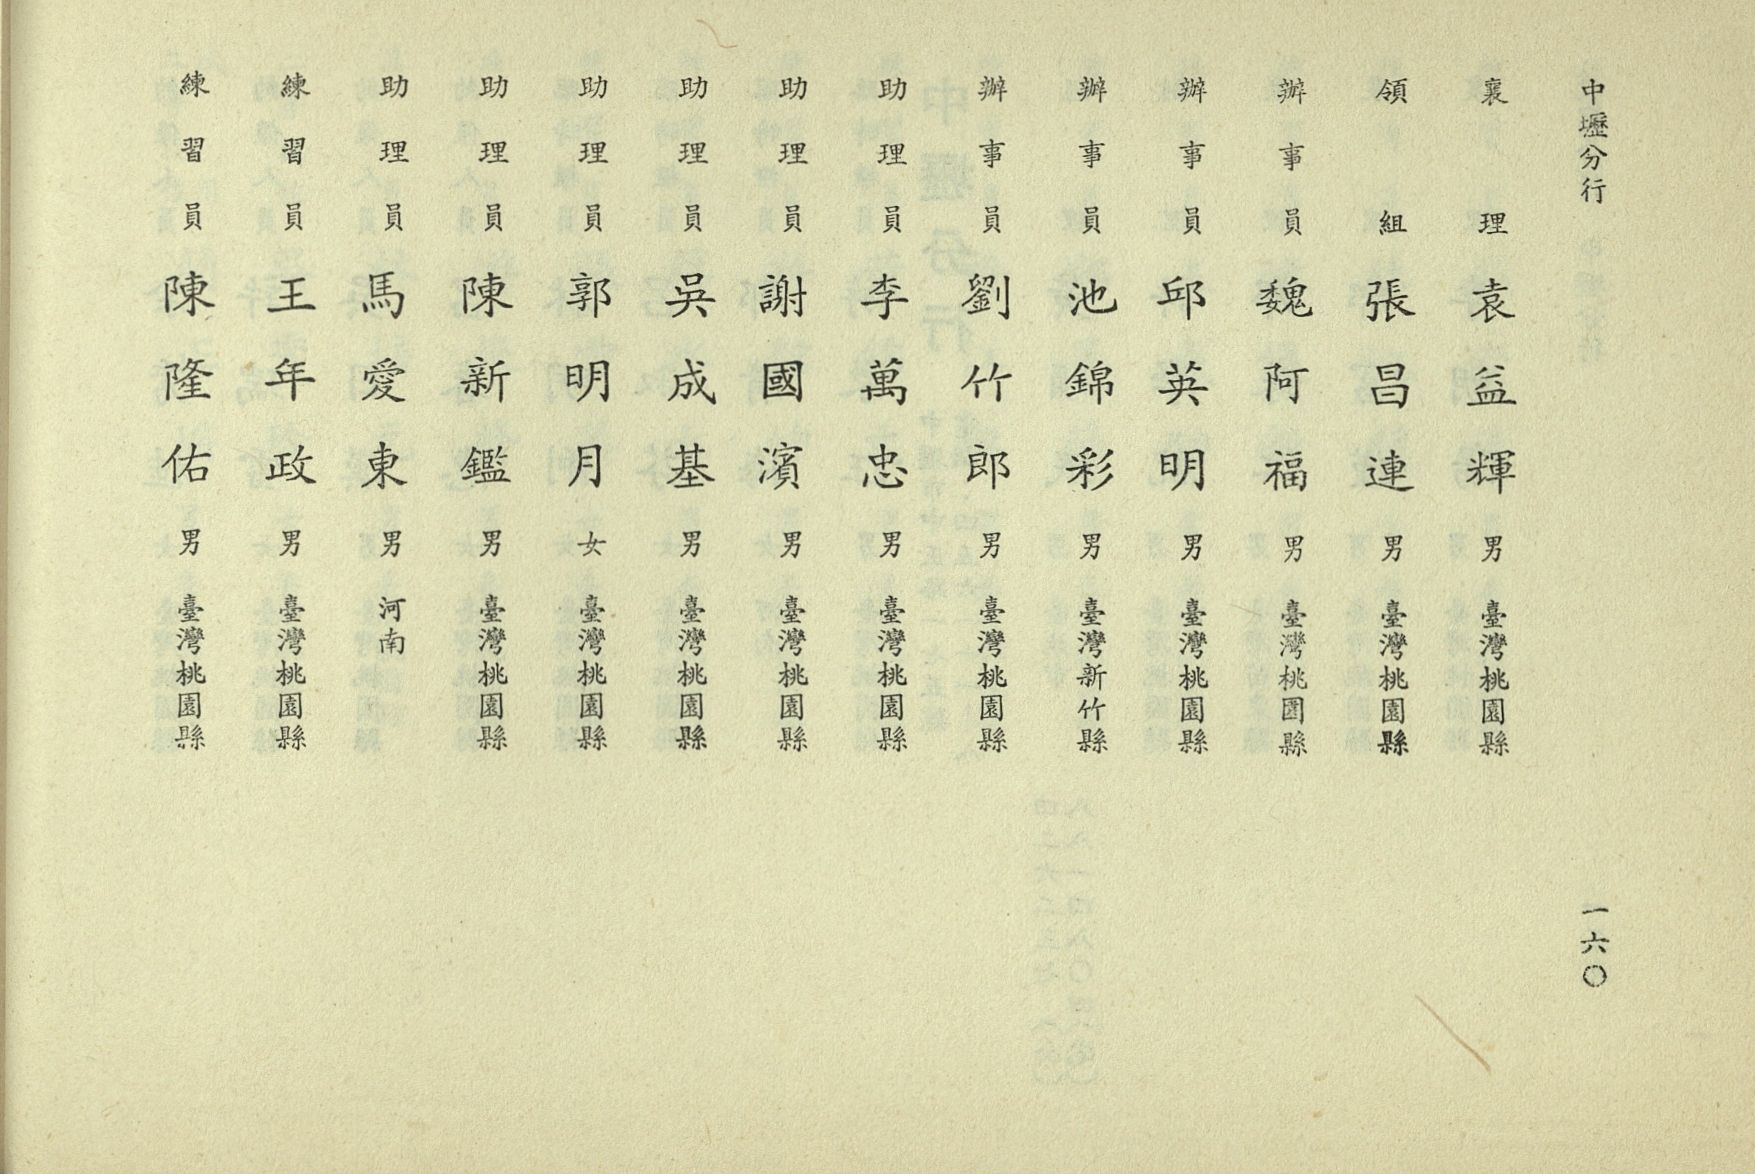 中壢分行 一六〇
襄理 袁益輝 男 臺灣桃園縣
領組 張昌連 男 臺灣桃園縣
辦事員 魏阿福 男 臺灣桃園縣
辦事員 邱英明 男 臺灣桃園縣
辦事員 池錦彩 男 臺灣新竹縣
辦事員 劉竹郎 男 臺灣桃園縣
助理員 李萬忠 男 臺灣桃園縣
助理員 謝國濱 男 臺灣桃園縣
助理員 吳成基 男 臺灣桃園縣
助理員 郭明月 女 臺灣桃園縣
助理員 陳新鑑 男 臺灣桃園縣
助理員 馬愛東 男 河南
練習員 王年政 男 臺灣桃園縣
練習員 陳隆佑 男 臺灣桃園縣